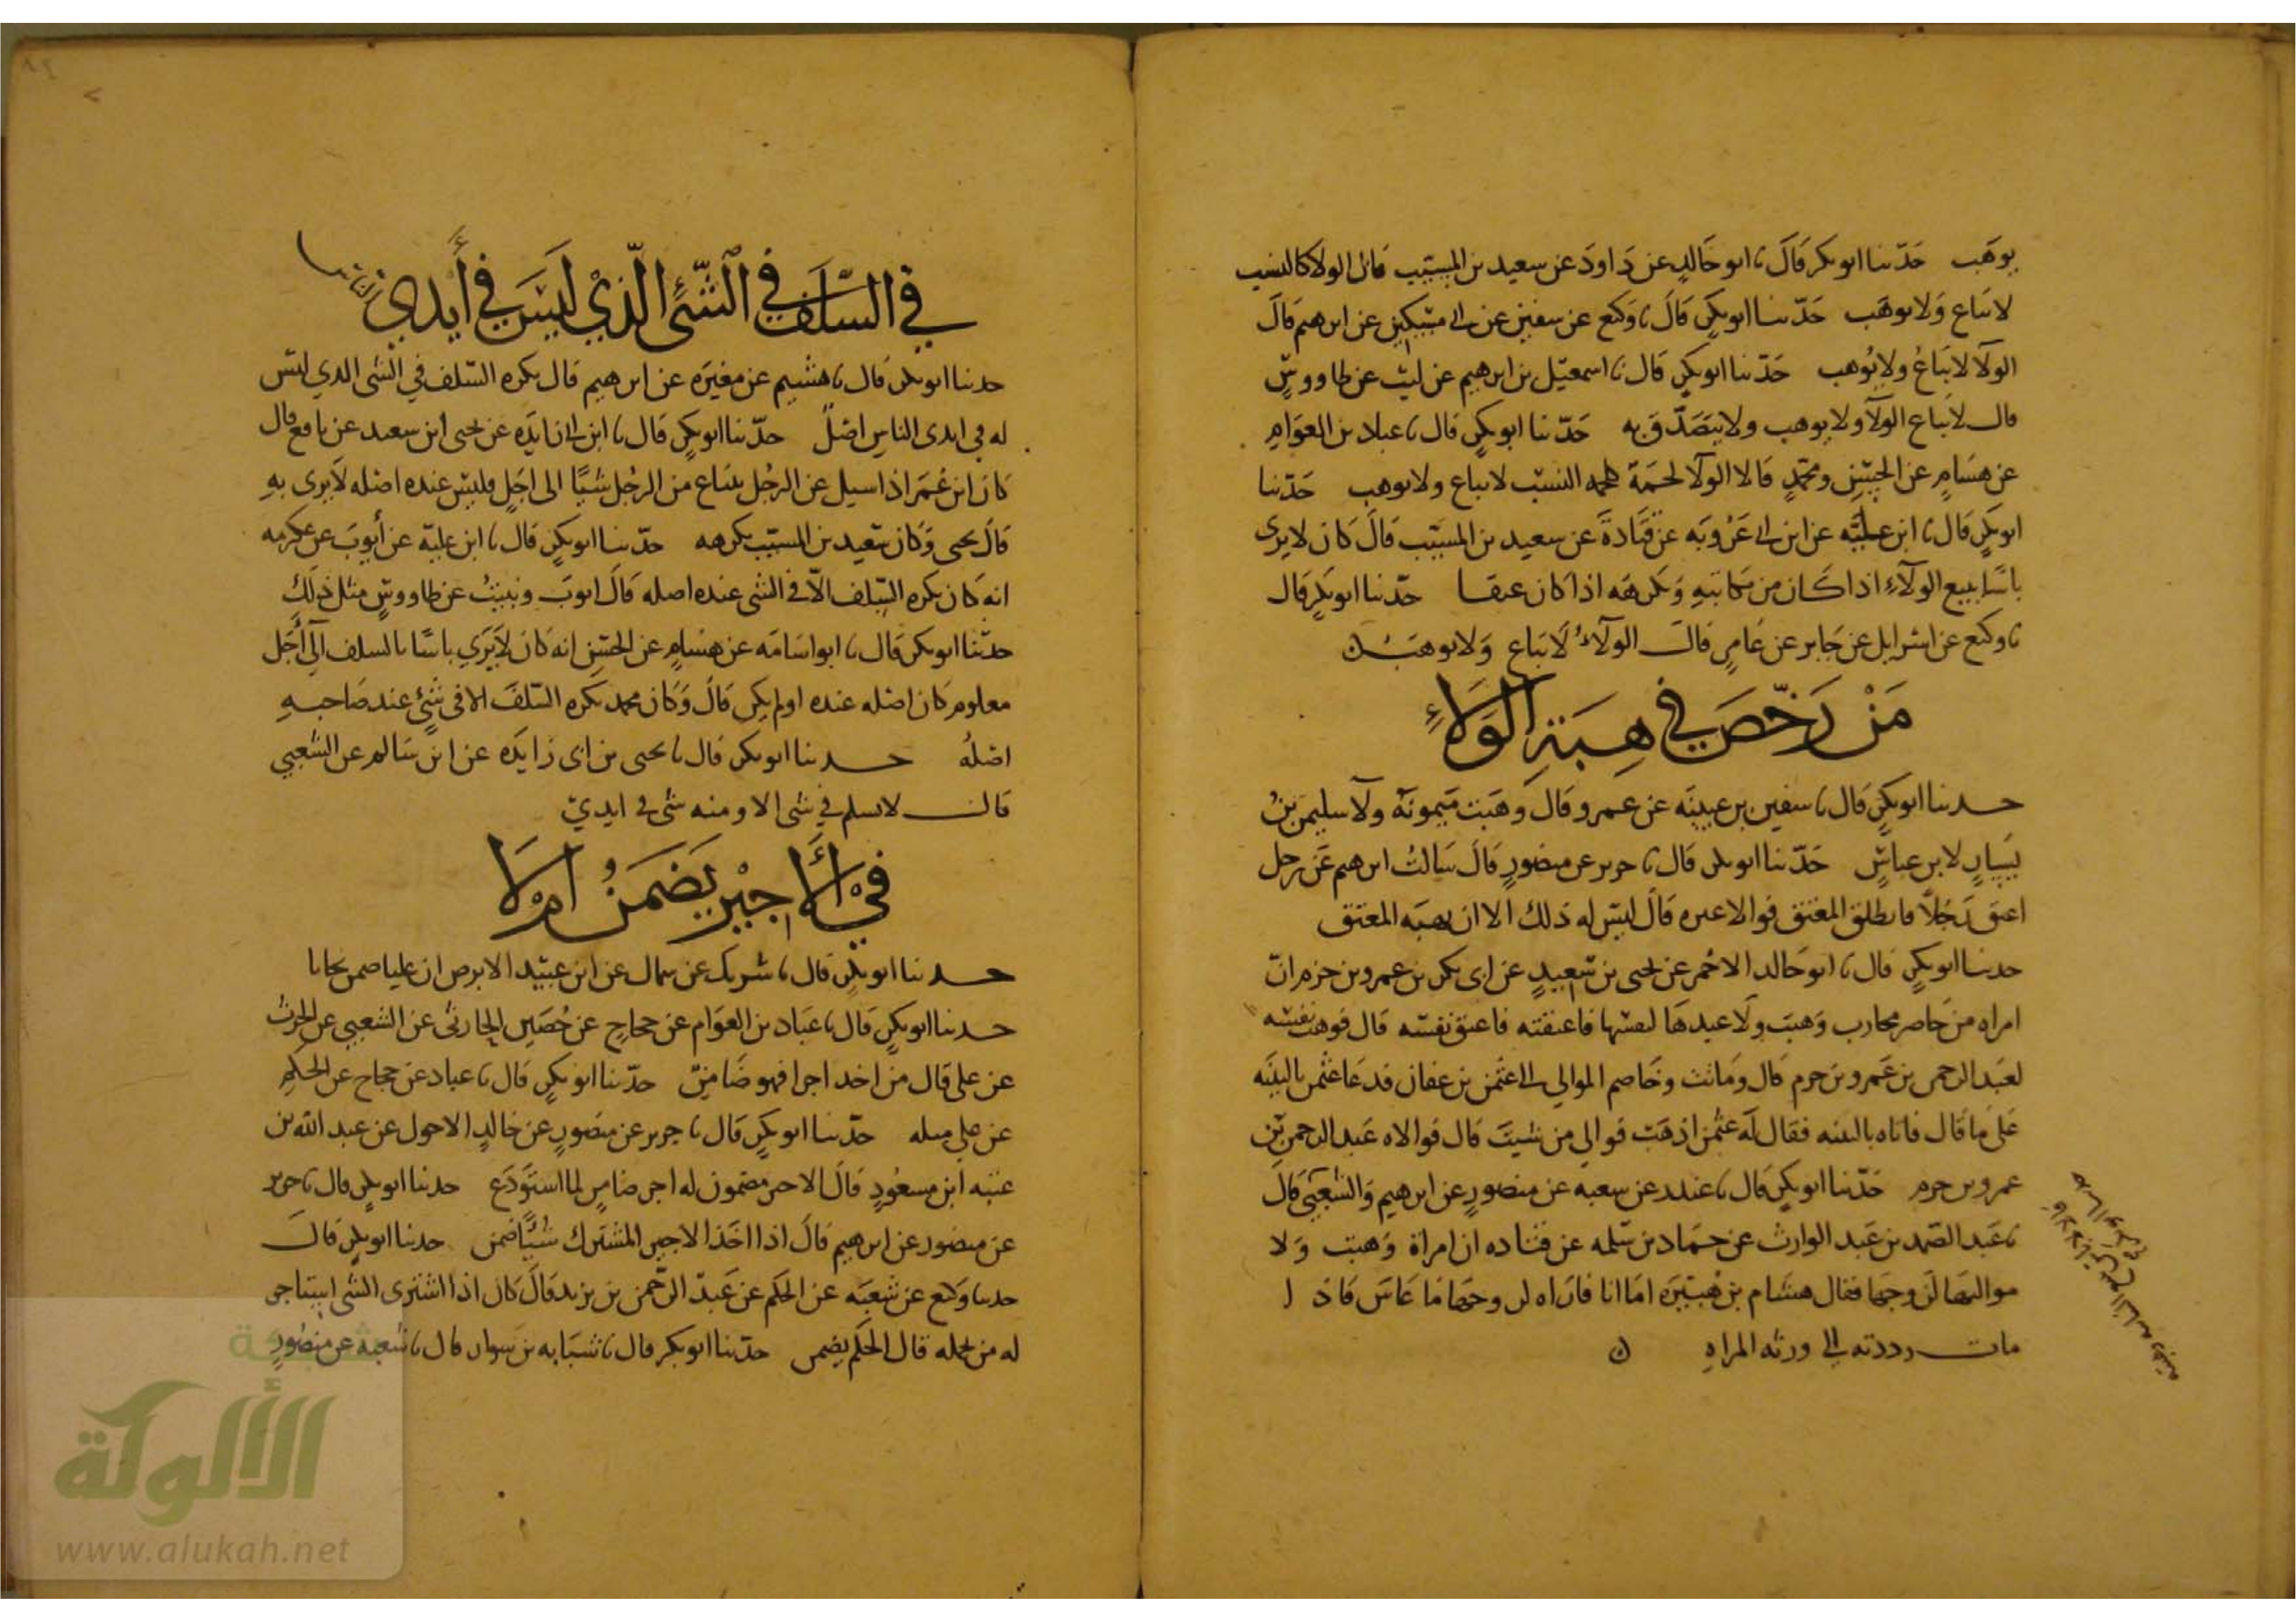 يوهب حدثنا ابو بكر قال نا ابو خالد عن داود عن سعيد بن المسيب قال الولا كالنسب
لا يباع ولا يوهب حدثنا ابو بكر قال نا وكيع عن سفين عن ابي مسكين عن ابرهيم قال
الولآ لا يباع ولا يوهب حدثنا ابو بكر قال نا اسمعيل بن ابرهيم عن ليث عن طاووس
قال لا يباع الولآ ولا يوهب ولا يتصدق به حدثنا ابو بكر قال نا عباد بن العوام
عن هشام عن الحسن ومحمد قالا الولآ لحمة كلحمه النسب لا يباع ولا يوهب حدثنا
ابو بكر قال نا ابن علية عن ابن ابي عروبه عن قتادة عن سعيد بن المسيب قال كان لا يرى
باسا ببيع الولآء اذا كان من مكاتبه ويكرهه اذا كان عتقا حدثنا ابو بكر قال
نا وكيع عن اسرايل عن جابر عن عامر قال الولآء لا يباع ولا يوهب
من رخص في هبة الولاء
حدثنا ابو بكر قال نا سفين بن عيينه عن عمرو قال وهبت ميمونة ولآ سليمن بن
يسار لابن عباس حدثنا ابو بكر قال نا جرير عن منصور قال سالت ابرهيم عن رجل
اعتق رجلا فانطلق المعتق فوالا غيره قال ليس له ذلك الا ان يهبه المعتق
حدثنا ابو بكر قال نا ابو خالد الاحمر عن يحيى بن سعيد عن ابي بكر بن عمرو بن حزم ان
امراه من محارب وهبت ولآ عبدها لنفسها فاعتقته فاعتق نفسه قال فوهب نفسه
لعبد الرحمن بن عمرو بن حزم قال وماتت وخاصم الموالي الى عثمن بن عفان فدعا عثمن بالبينه
على ما قال فاتاه بالبينه فقال له عثمن اذهب فوالي من شيت قال فوالاه عبد الرحمن بن
عمرو بن حزم حدثنا ابو بكر قال نا غندر عن سعبه عن منصور عن ابرهيم والشعبي قال
نا عبد الصمد بن عبد الوارث عن حماد بن سلمه عن قتاده ان امراة وهبت ولا
مواليها لزوجها فقال هشام بن هبيرة اما انا فاراه لزوجها ما عاش فاذا
مات رددته الى ورثه المراه
في السلف في الشئ الذي ليس في أيدي الناس
حدثنا ابو بكر قال نا هشيم عن مغيره عن ابرهيم قال يكره السلف في الشى الذي ليس
له في ايدى الناس اصل حدثنا ابو بكر قال نا ابن ابي زايده عن يحيى ابن سعيد عن نافع قال
كان ابن عمر اذا سيل عن الرجل يبتاع من الرجل شيا الى اجل وليس عنده اصله لا يرى به
قال يحيى وكان سعيد بن المسيب يكرهه حدثنا ابو بكر قال نا ابن علية عن أيوب عن عكرمه
انه كان يكره السلف الا في الشى عنده اصله قال ايوب ونبيت عن طاووس مثل ذلك
حدثنا ابو بكر قال نا ابو اسامه عن هشام عن الحسن انه كان لا يرى باسا بالسلف الى أجل
معلوم كان اصله عنده او لم يكن قال وكان محمد يكره السلف الا في شئ عند صاحبه
اصله حدثنا ابو بكر قال نا يحيى بن ابي زايده عن ابن سالم عن الشعبي
قال لا تسلم في شى الا ومنه شى في ايدي
في الأجير يضمن ام لا
حدثنا ابو بكر قال نا شريك عن سماك عن ابن عبيد الابرص ان عليا ضمن نجارا
حدثنا ابو بكر قال نا عباد بن العوام عن حجاج عن حصين الحارثى عن الشعبي عن الحرث
عن على قال من اخد اجرا فهو ضامن حدثنا ابو بكر قال نا عباد عن حجاج عن الحكم
عن علي مثله حدثنا ابو بكر قال نا جرير عن منصور عن خالد الاحول عن عبد الله بن
عتبه ابن مسعود قال الاجر مضمون له اجر ضامن لما استودع حدثنا ابو بكر قال نا جرير
عن منصور عن ابرهيم قال اذا اخذ الاجير المشترك شيا ضمن حدثنا ابو بكر قال
حدثنا وكيع عن شعبه عن الحكم عن عبد الرحمن بن يزيد قال كان اذا اشترى الشى استاجر
له من يحمله قال الحكم يضمن حدثنا ابو بكر قال نا شبابه بن سوار قال نا شعبه عن منصور
شبكة
الألوكة
www.alukah.net